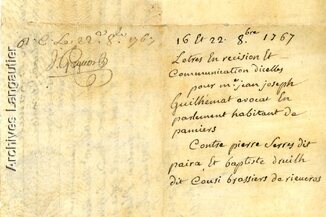 Archives Largautier
A. C. Lo. 22 8bre 1767
16 et 22. 8bre 1767
Letres en recision et
Communication dicelles
pour me jean joseph
Guilhemat avocat en
parlement habitant de
pamiers
Contre pierre Serres dit
paira, et baptiste druilh
dit Cousi brassiers de rieucros